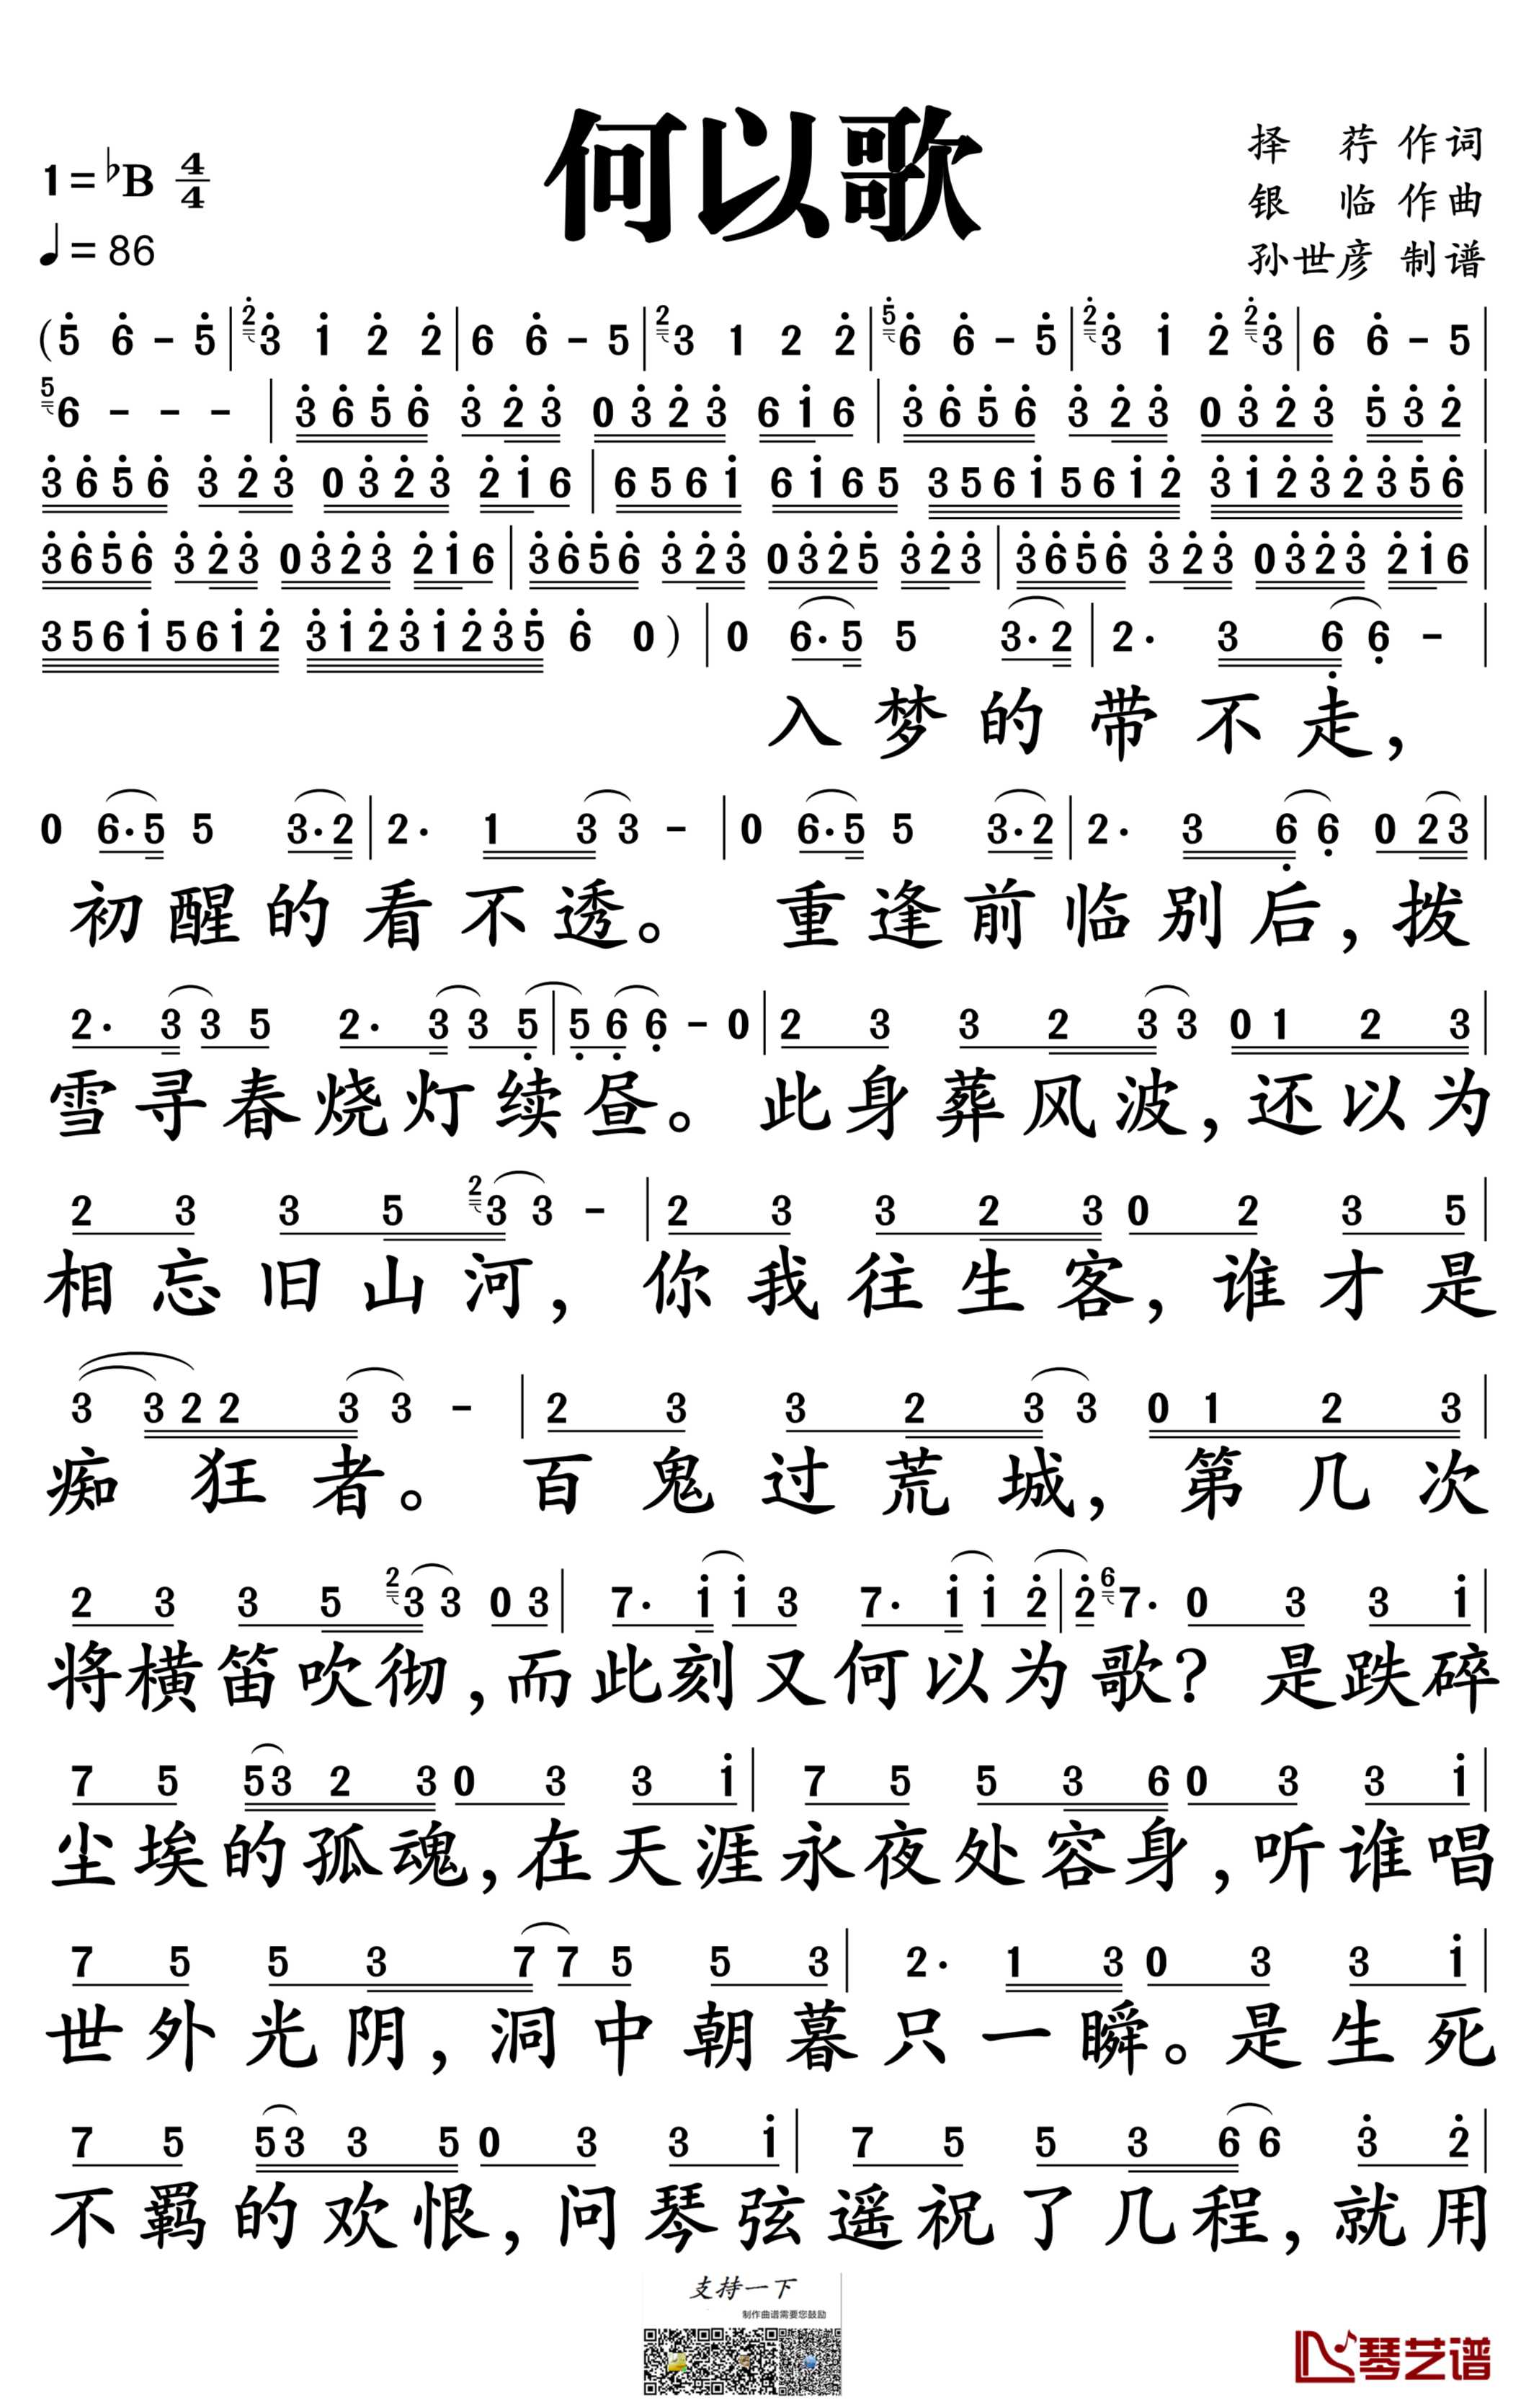 何以歌
1=♭B 4/4
♩=86
择 荇 作词
银 临 作曲
孙世彦 制谱
(5̇ 6̇ - 5̇ | 2̇3̇ 1̇ 2̇ 2̇ | 6 6̇ - 5 | 23 1 2 2̇ | 5̇6̇ 6̇ - 5̇ | 2̇3̇ 1̇ 2̇ 2̇3̇ | 6 6̇ - 5 |
56 - - - | 3̇6̇5̇6̇ 3̇2̇3̇ 03̇2̇3̇ 61̇6 | 3̇6̇5̇6̇ 3̇2̇3̇ 03̇2̇3̇ 5̇3̇2̇ |
3̇6̇5̇6̇ 3̇2̇3̇ 03̇2̇3̇ 2̇1̇6 | 6561̇ 61̇65 3561̇561̇2̇ 3̇1̇2̇3̇2̇3̇5̇6̇ |
3̇6̇5̇6̇ 3̇2̇3̇ 03̇2̇3̇ 2̇1̇6 | 3̇6̇5̇6̇ 3̇2̇3̇ 03̇2̇5̇ 3̇2̇3̇ | 3̇6̇5̇6̇ 3̇2̇3̇ 03̇2̇3̇ 2̇1̇6 |
3561̇561̇2̇ 3̇1̇2̇3̇1̇2̇3̇5̇ 6̇ 0) | 0 6·5 5 3·2 | 2· 3 6̣ 6̣ - |
入梦的带不走,
0 6·5 5 3·2 | 2· 1 3 3 - | 0 6·5 5 3·2 | 2· 3 6̣ 6̣ 0 2 3 |
初醒的看不透。 重逢前临别后,拨
2· 3 3 5 2· 3 3 5̣ | 5̣ 6̣ 6̣ - 0 | 2 3 3 2 3 3 0 1 2 3 |
雪寻春烧灯续昼。此身葬风波,还以为
2 3 3 5 23 3 - | 2 3 3 2 3 0 2 3 5 |
相忘旧山河,你我往生客,谁才是
3 3 2 2 3 3 - | 2 3 3 2 3 3 0 1 2 3 |
痴狂者。百鬼过荒城,第几次
2 3 3 5 23 3 0 3 | 7· 1̇ 1̇ 3 7· 1̇ 1̇ 2̇ | 2̇ 67· 0 3 3 1̇ |
将横笛吹彻,而此刻又何以为歌? 是跌碎
7 5 53 2 3 0 3 3 1̇ | 7 5 5 3 6 0 3 3 1̇ |
尘埃的孤魂,在天涯永夜处容身,听谁唱
7 5 5 3 7 7 5 5 3 | 2· 1 3 0 3 3 1̇ |
世外光阴,洞中朝暮只一瞬。是生死
7 5 53 3 5 0 3 3 1̇ | 7 5 5 3 6 6 3̇ 2̇ |
不羁的欢恨,问琴弦遥祝了几程,就用
支持一下
制作曲谱需要您鼓励
琴艺谱